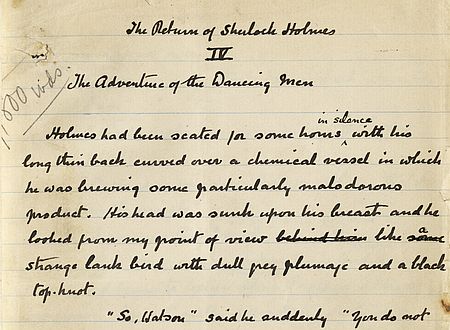 The Return of Sherlock Holmes
IV
wds.
The Adventure of the Dancing Men
in silence
Holmes had been seated for some hours ^ with his
long thin back curved over a chemical vessel in which
he was brewing some particularly malodorous
product. His head was sunk upon his breast and he
a
looked from my point of view behind him like some
strange lank bird with dull grey plumage and a black
top-knot.
"So, Watson" said he suddenly "You do not